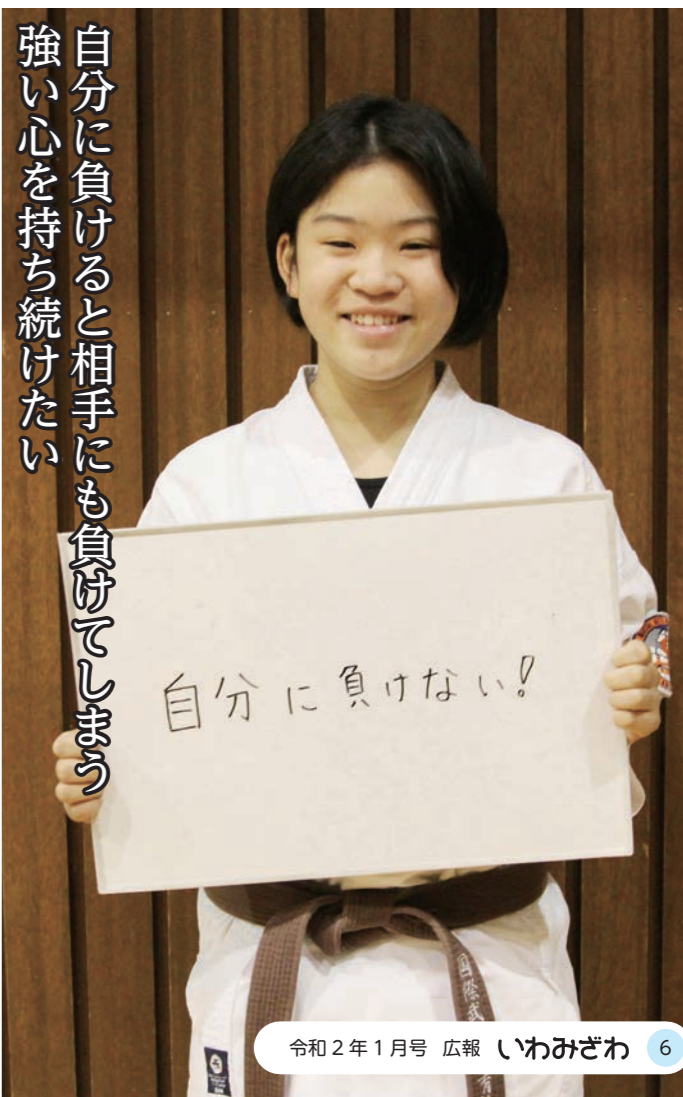 自分に負けると相手にも負けてしまう
強い心を持ち続けたい
自分に負けない!
国際武
有
令和2年1月号 広報 いわみざわ 6